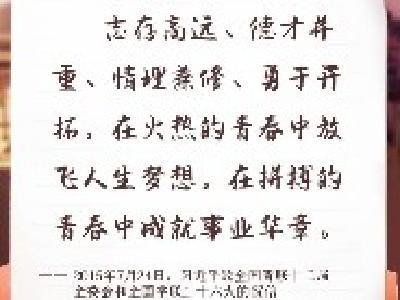 志存高远、德才并
重、情理兼修、勇于开
拓，在火热的青春中放
飞人生梦想，在拼搏的
青春中成就事业华章。
—— 2015年7月24日，习近平致全国青联十二届
全委会和全国学联二十六大的贺信